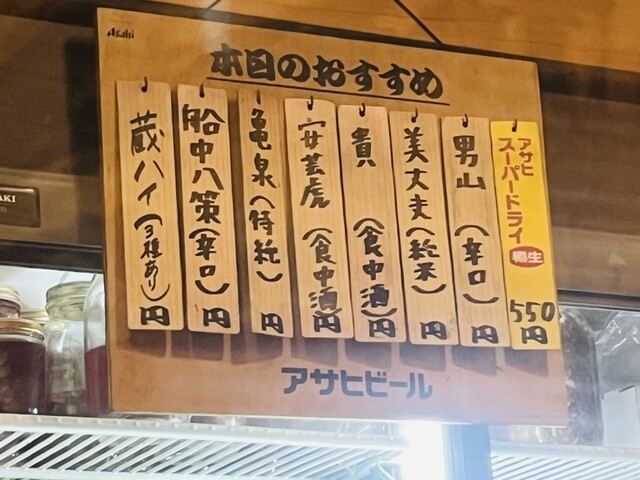 Asahi
本日のおすすめ
アサヒ
スーパードライ
樽生
550
円
男山(辛口)
円
美丈夫(純米)
円
貴(食中酒)
円
安芸虎(食中酒)
円
亀泉(特純)
円
船中八策(辛口)
円
蔵ハイ(3種あり)
円
アサヒビール